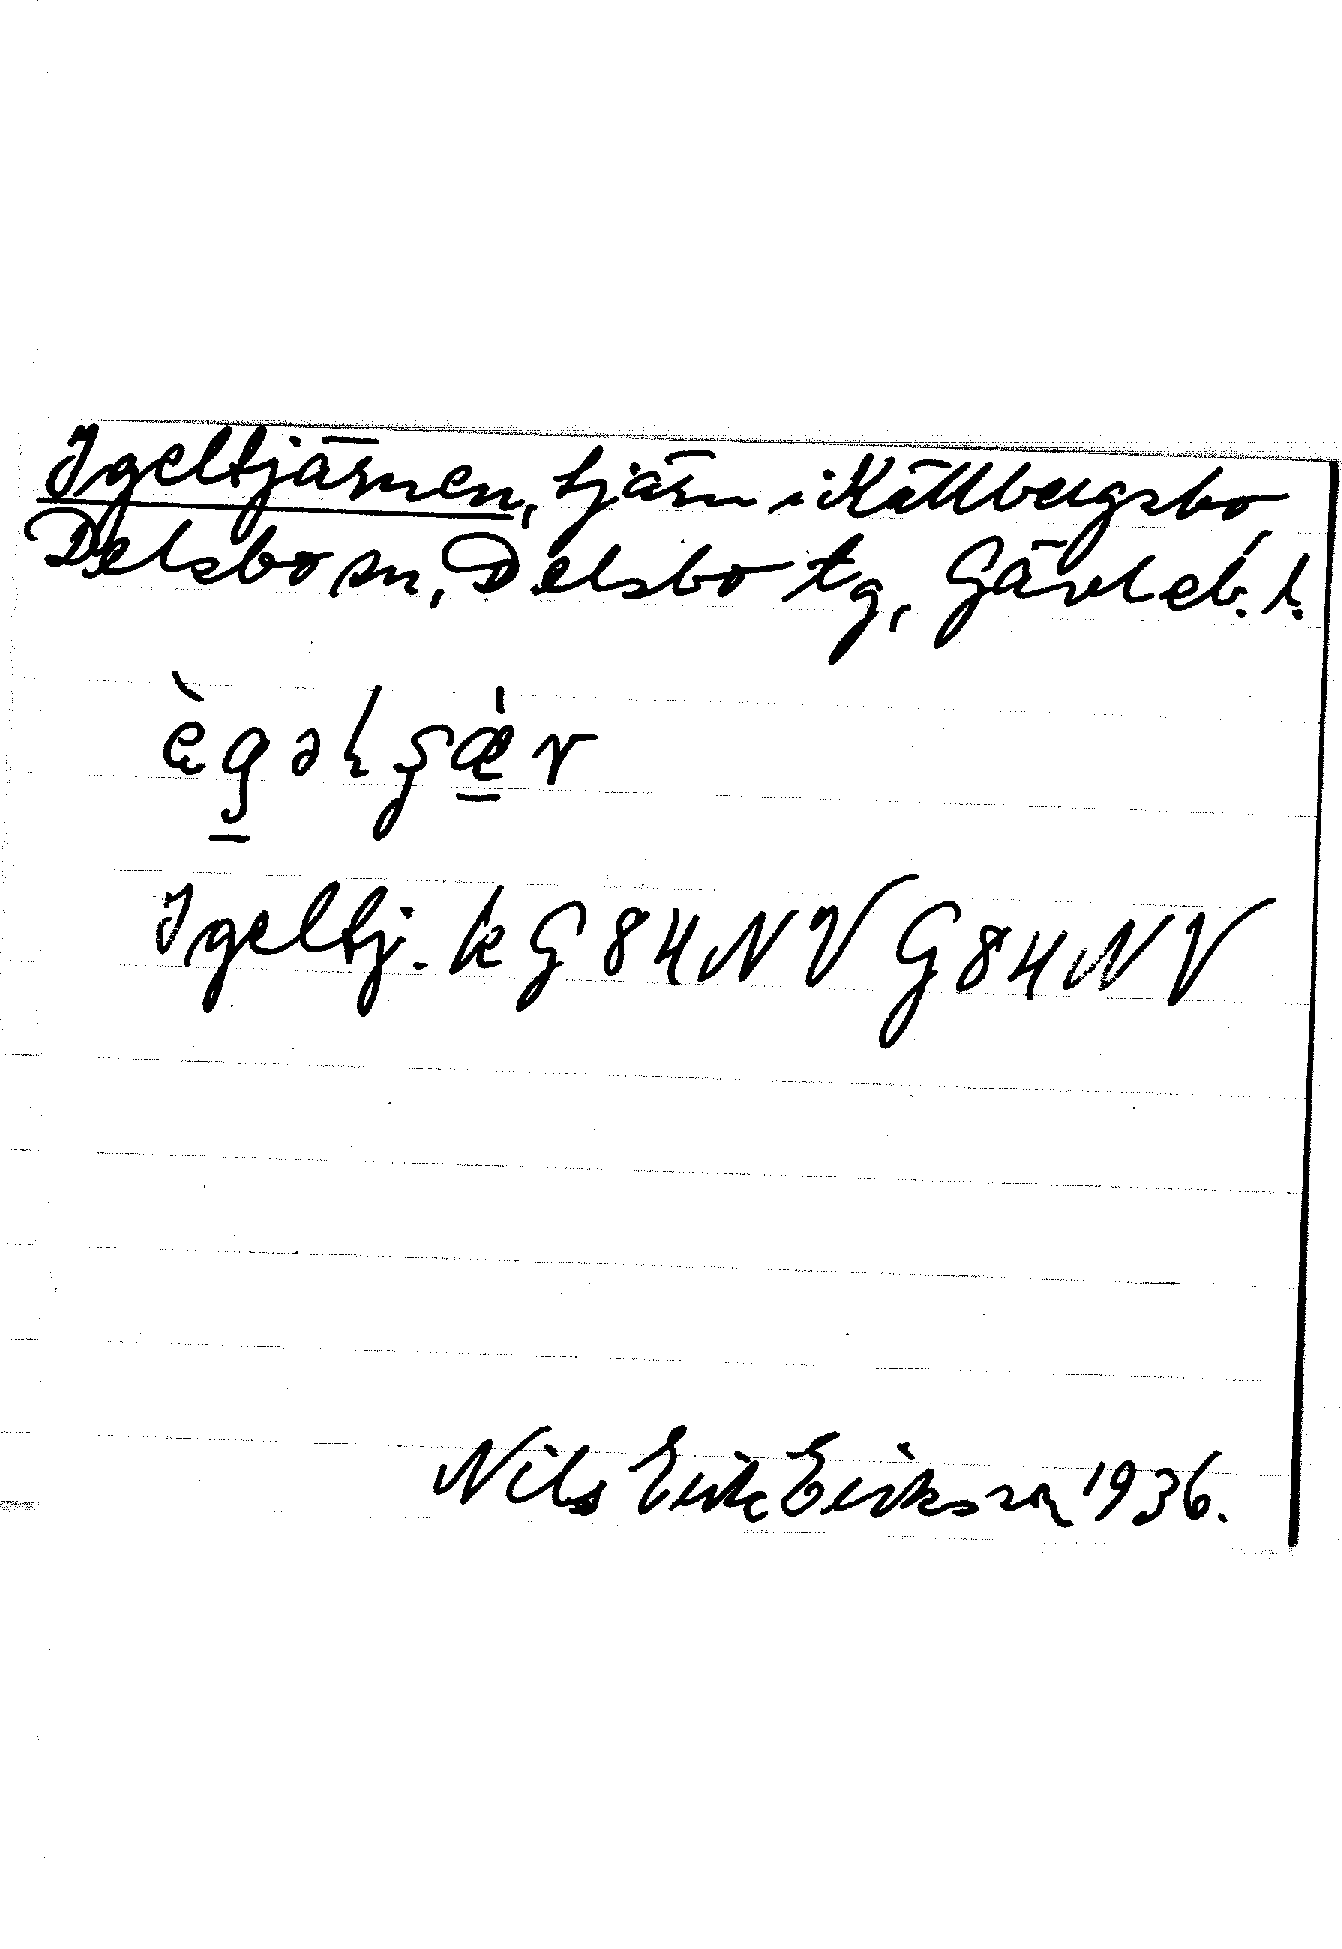 Igeltjärnen, tjärn i Källbergsbo
Delsbo sn, Delsbo tg, Gävleb. l.
Igeltj. k G 84 NV G 84 NV
Nils Erik Eriksson 1936.